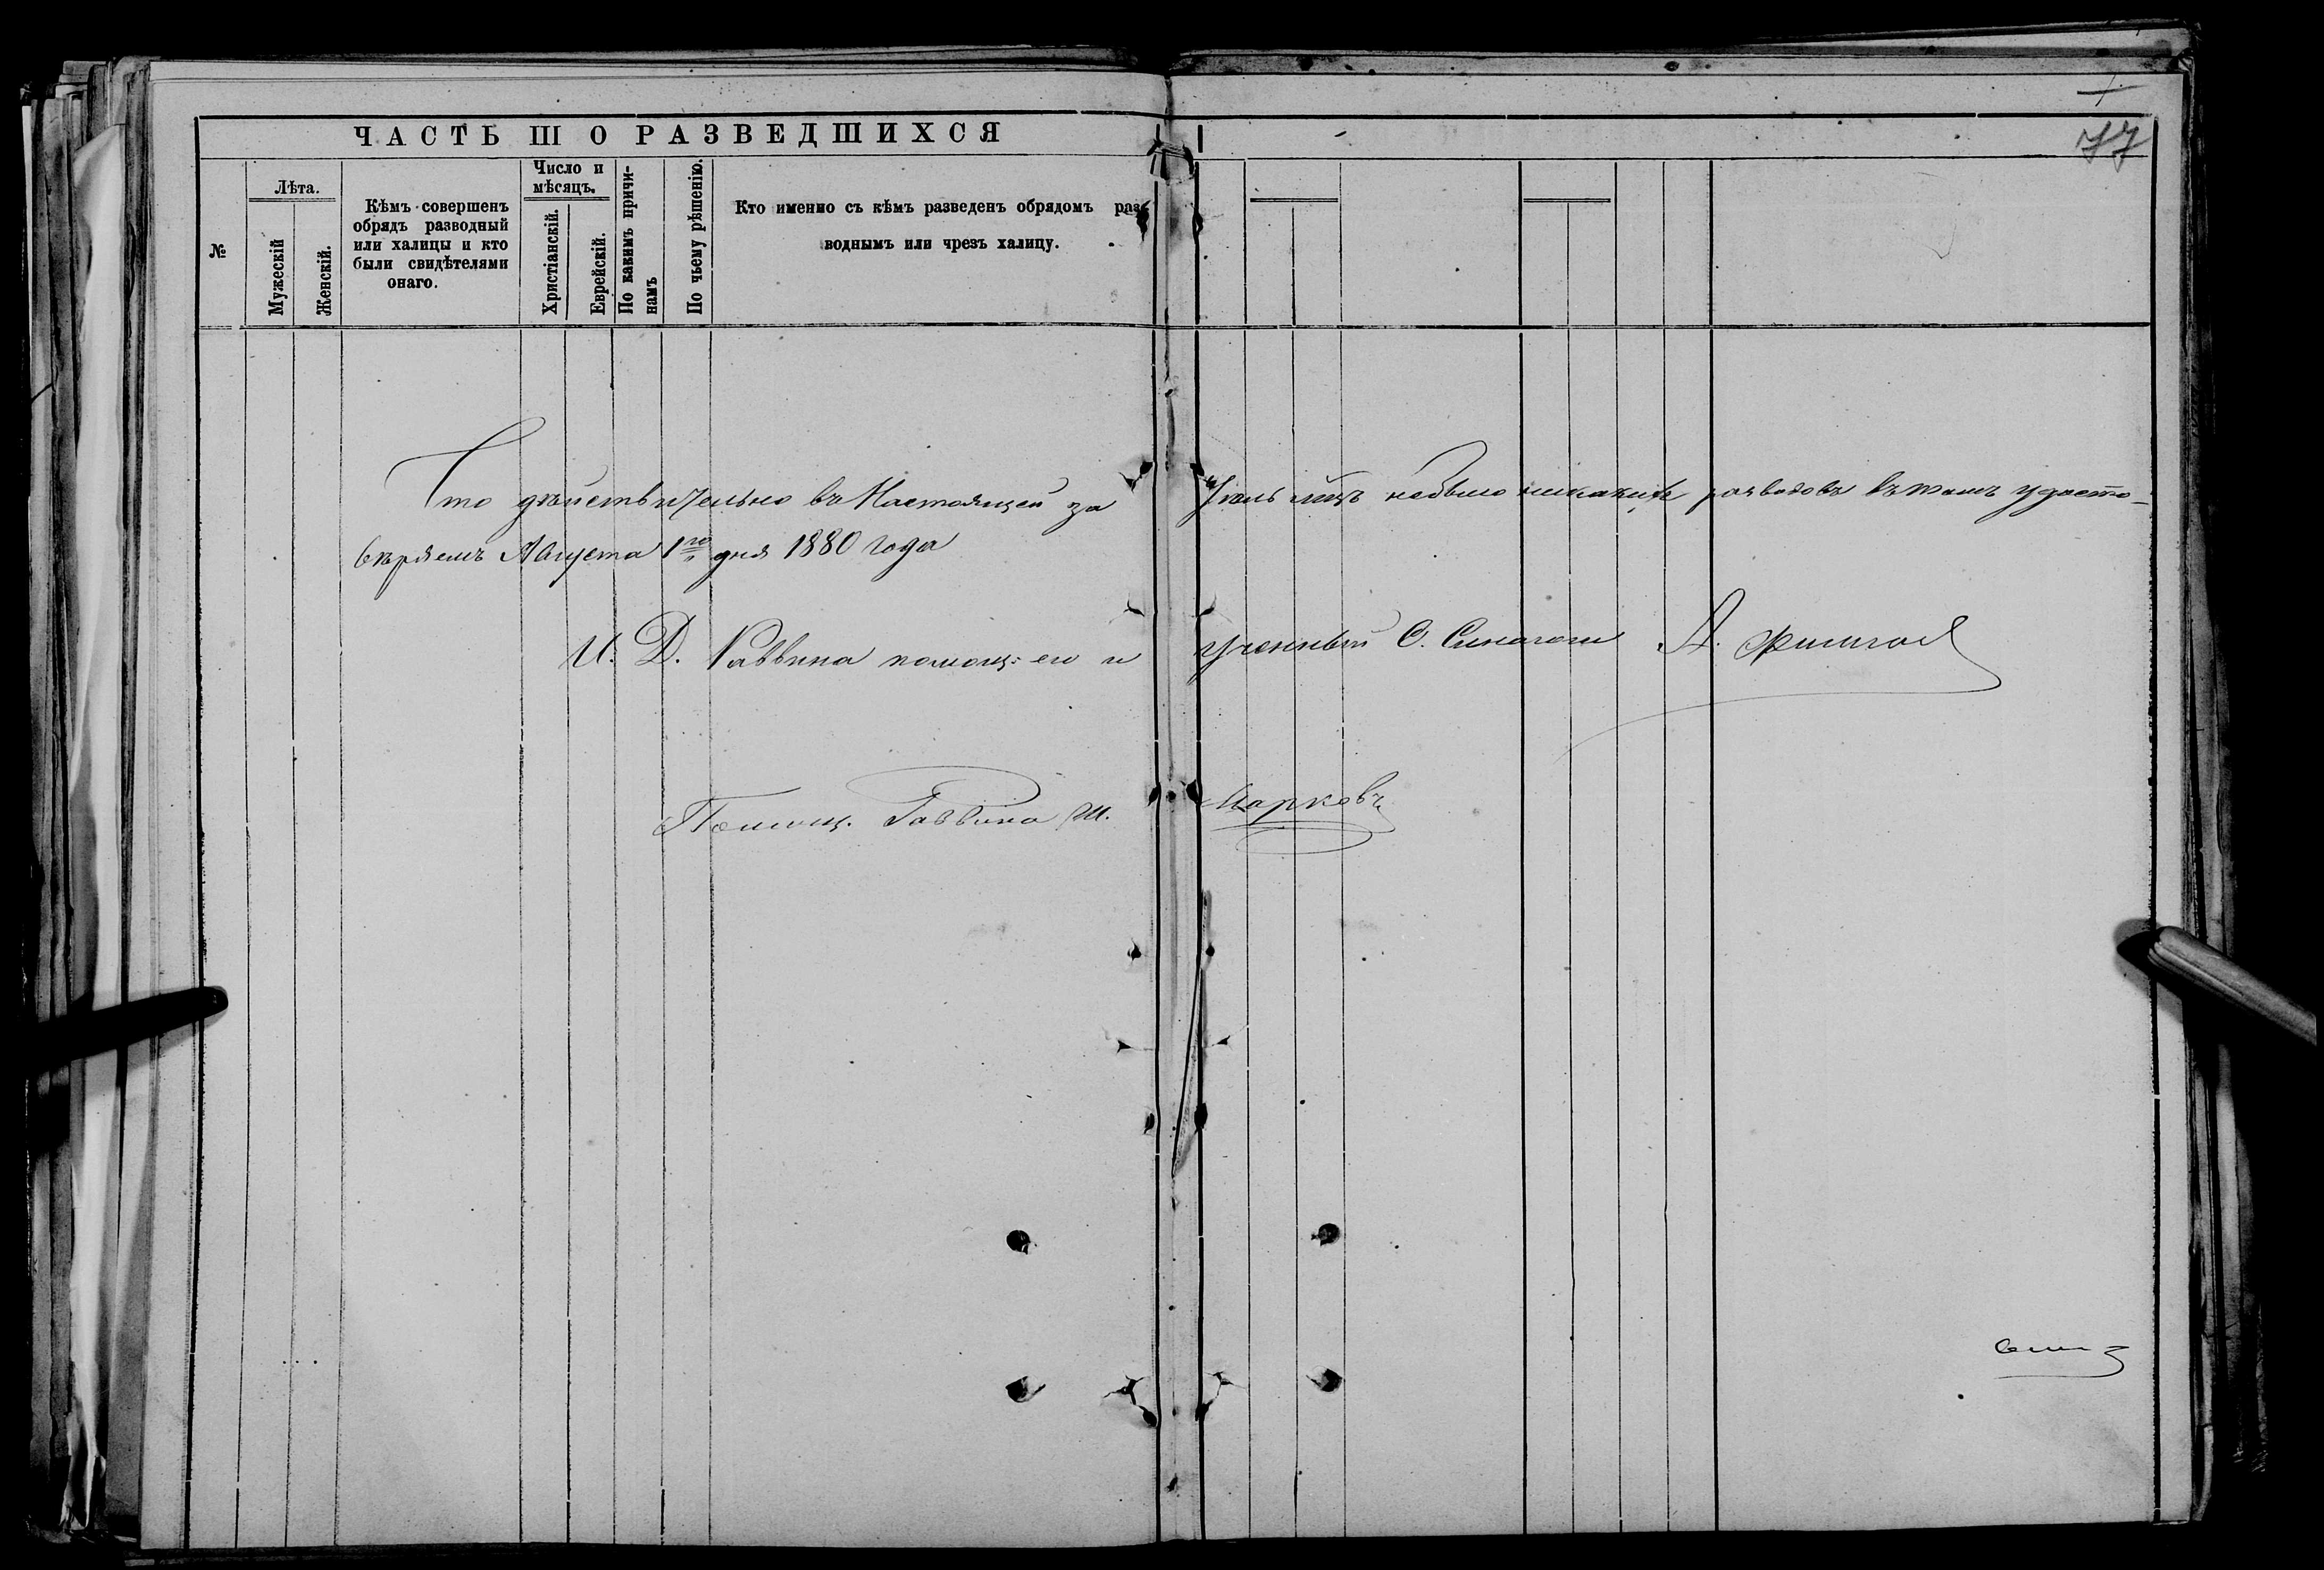 77
ЧАСТЬ III О РАЗВЕДШИХСЯ
№
Лѣта.
Мужескій
Женскій.
Кѣмъ совершенъ
обрядъ разводный
или халицы и кто
были свидѣтелями
онаго.
Число и
мѣсяцъ.
Христіанскій.
Еврейскій.
По какимъ причи-
намъ
По чьему рѣшенію.
Кто именно съ кѣмъ разведенъ обрядомъ раз-
воднымъ или чрезъ халицу.
Что дѣйствительно въ Настоящей за Іюль мѣць небыло никакихъ разводовъ въ томъ удосто-
вѣряемъ Августа 1го дня 1880 года
И. Д. Раввина помощ: его и Ученный О. Синагоги А.
Помощ. Раввина М. Марковъ